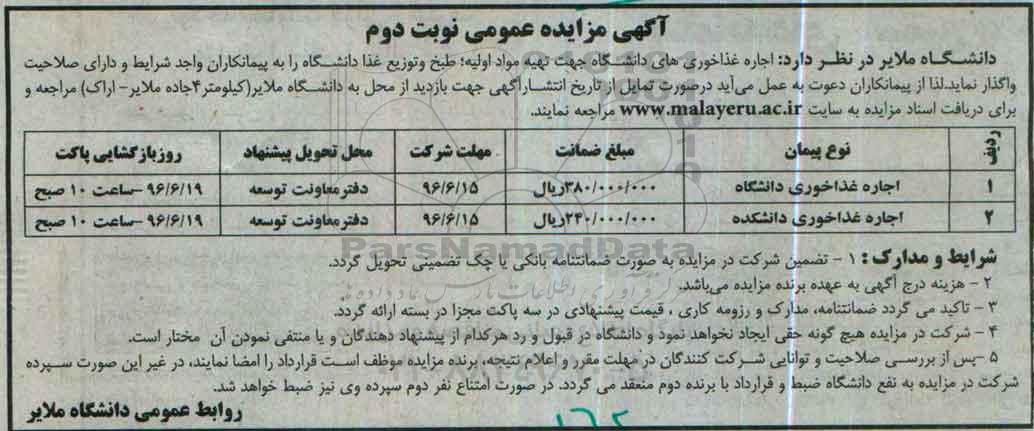 آگهی مزایده عمومی نوبت دوم
دانشگاه ملایر در نظر دارد: اجاره غذاخوری های دانشگاه جهت تهیه مواد اولیه؛ طبخ وتوزیع غذا دانشگاه را به پیمانکاران واجد شرایط و دارای صلاحیت
واگذار نماید.لذا از پیمانکاران دعوت به عمل می‌آید درصورت تمایل از تاریخ انتشارآگهی جهت بازدید از محل به دانشگاه ملایر(کیلومتر۴جاده ملایر- اراک) مراجعه و
برای دریافت اسناد مزایده به سایت www.malayeru.ac.ir مراجعه نمایند.
ردیف نوع پیمان مبلغ ضمانت مهلت شرکت محل تحویل پیشنهاد روزبازگشایی پاکت
۱ اجاره غذاخوری دانشگاه ۳۸۰/۰۰۰/۰۰۰ریال ۹۶/۶/۱۵ دفترمعاونت توسعه ۹۶/۶/۱۹ -ساعت ۱۰ صبح
۲ اجاره غذاخوری دانشکده ۲۴۰/۰۰۰/۰۰۰ریال ۹۶/۶/۱۵ دفترمعاونت توسعه ۹۶/۶/۱۹ -ساعت ۱۰ صبح
ParsNamadData
شرایط و مدارک : ۱ - تضمین شرکت در مزایده به صورت ضمانتنامه بانکی یا چک تضمینی تحویل گردد.
۲ - هزینه درج آگهی به عهده برنده مزایده می‌باشد.
۳ - تاکید می گردد ضمانتنامه، مدارک و رزومه کاری ، قیمت پیشنهادی در سه پاکت مجزا در بسته ارائه گردد.
۴ - شرکت در مزایده هیچ گونه حقی ایجاد نخواهد نمود و دانشگاه در قبول و رد هرکدام از پیشنهاد دهندگان و یا منتفی نمودن آن مختار است.
۵ -پس از بررسی صلاحیت و توانایی شرکت کنندگان در مهلت مقرر و اعلام نتیجه، برنده مزایده موظف است قرارداد را امضا نمایند، در غیر این صورت سپرده
شرکت در مزایده به نفع دانشگاه ضبط و قرارداد با برنده دوم منعقد می گردد. در صورت امتناع نفر دوم سپرده وی نیز ضبط خواهد شد.
روابط عمومی دانشگاه ملایر